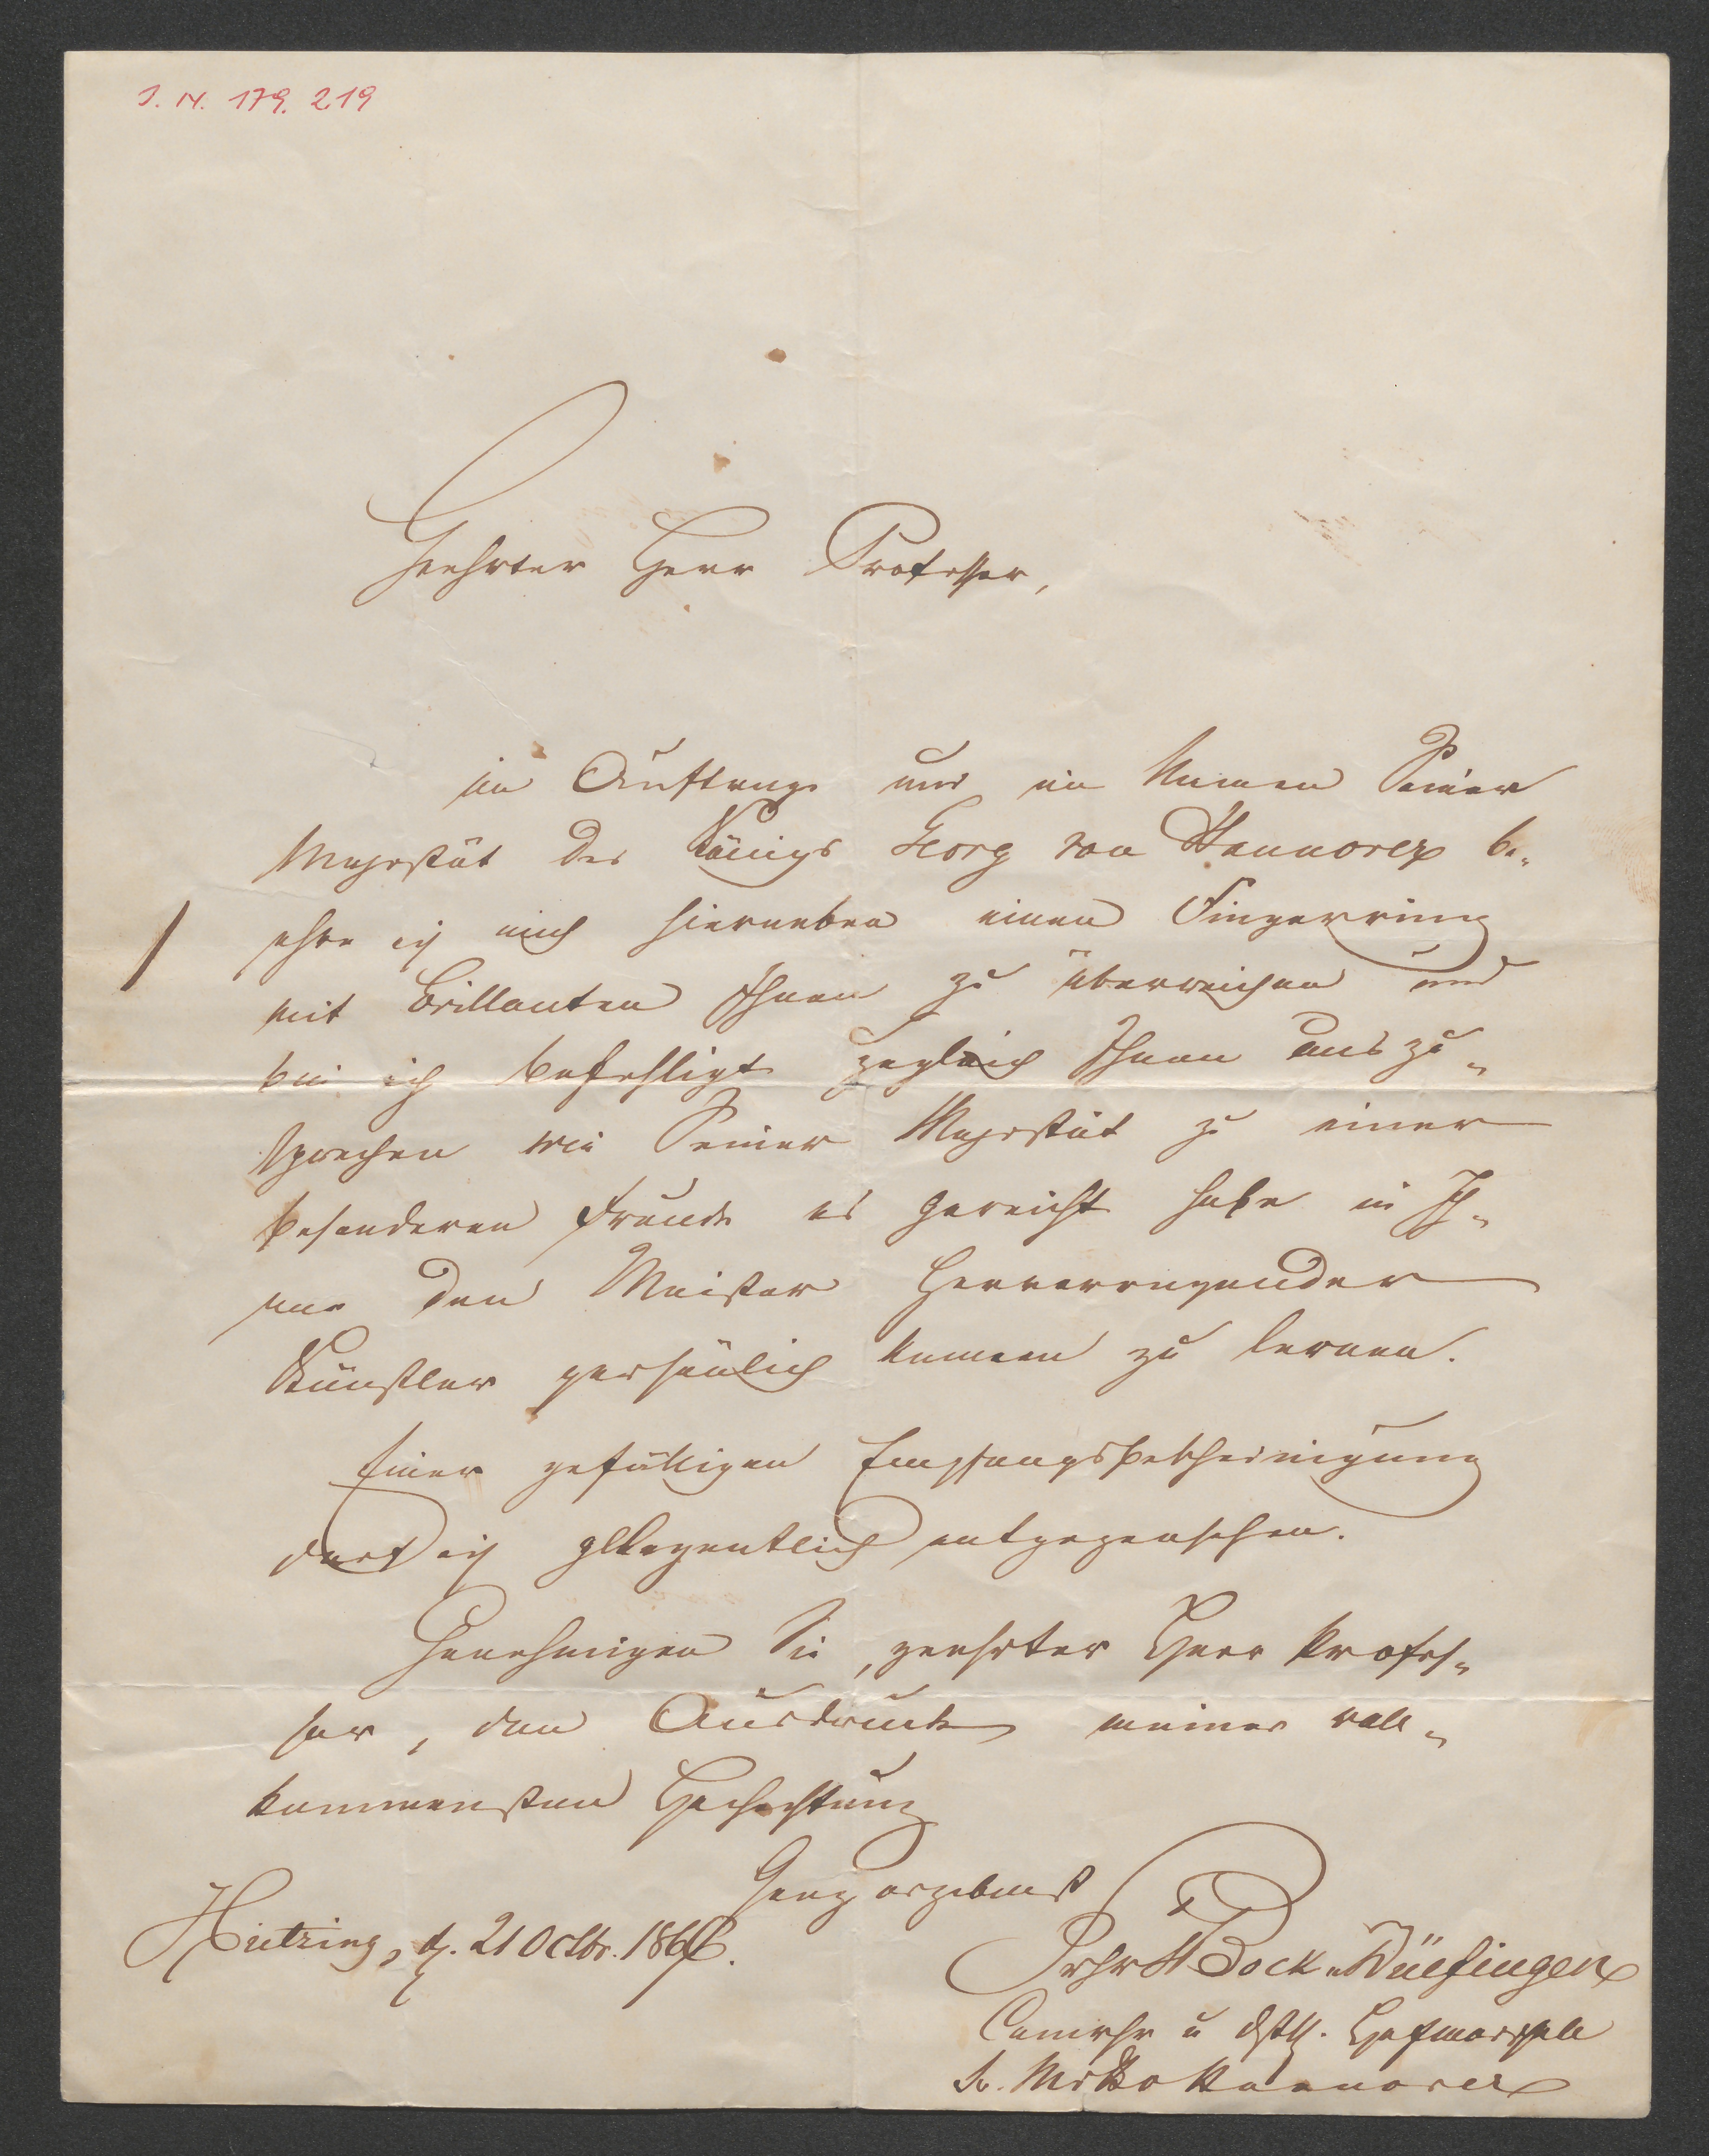 J. N. 179. 219
Geehrter Herr Professor,
im Auftrage und im Namen Seiner
Majestät des Königs Georg von Hannover be-
ehre ich mich hierneben einen Fingerring
mit Brillanten Ihnen zu überreichen und
bin ich befehligt zugleich Ihnen auszu-
sprechen wie Seiner Majestät zu einer
besonderen Freude es gereicht habe in Ih-
nen den Meister hervorragender
Künstler persönlich kennen zu lernen.
Einer gefälligen Empfangsbescheinigung
darf ich gelegentlich entgegensehen.
Genehmigen Sie, geehrter Herr Profes-
sor, den Ausdruck meiner voll-
kommensten Hochachtung
Ganz ergebenst
Hietzing, d. 21 Octbr. 1866.
Frhr Bock v Wülfingen
Camrhr u Hofmarschall
Sr. Hannover